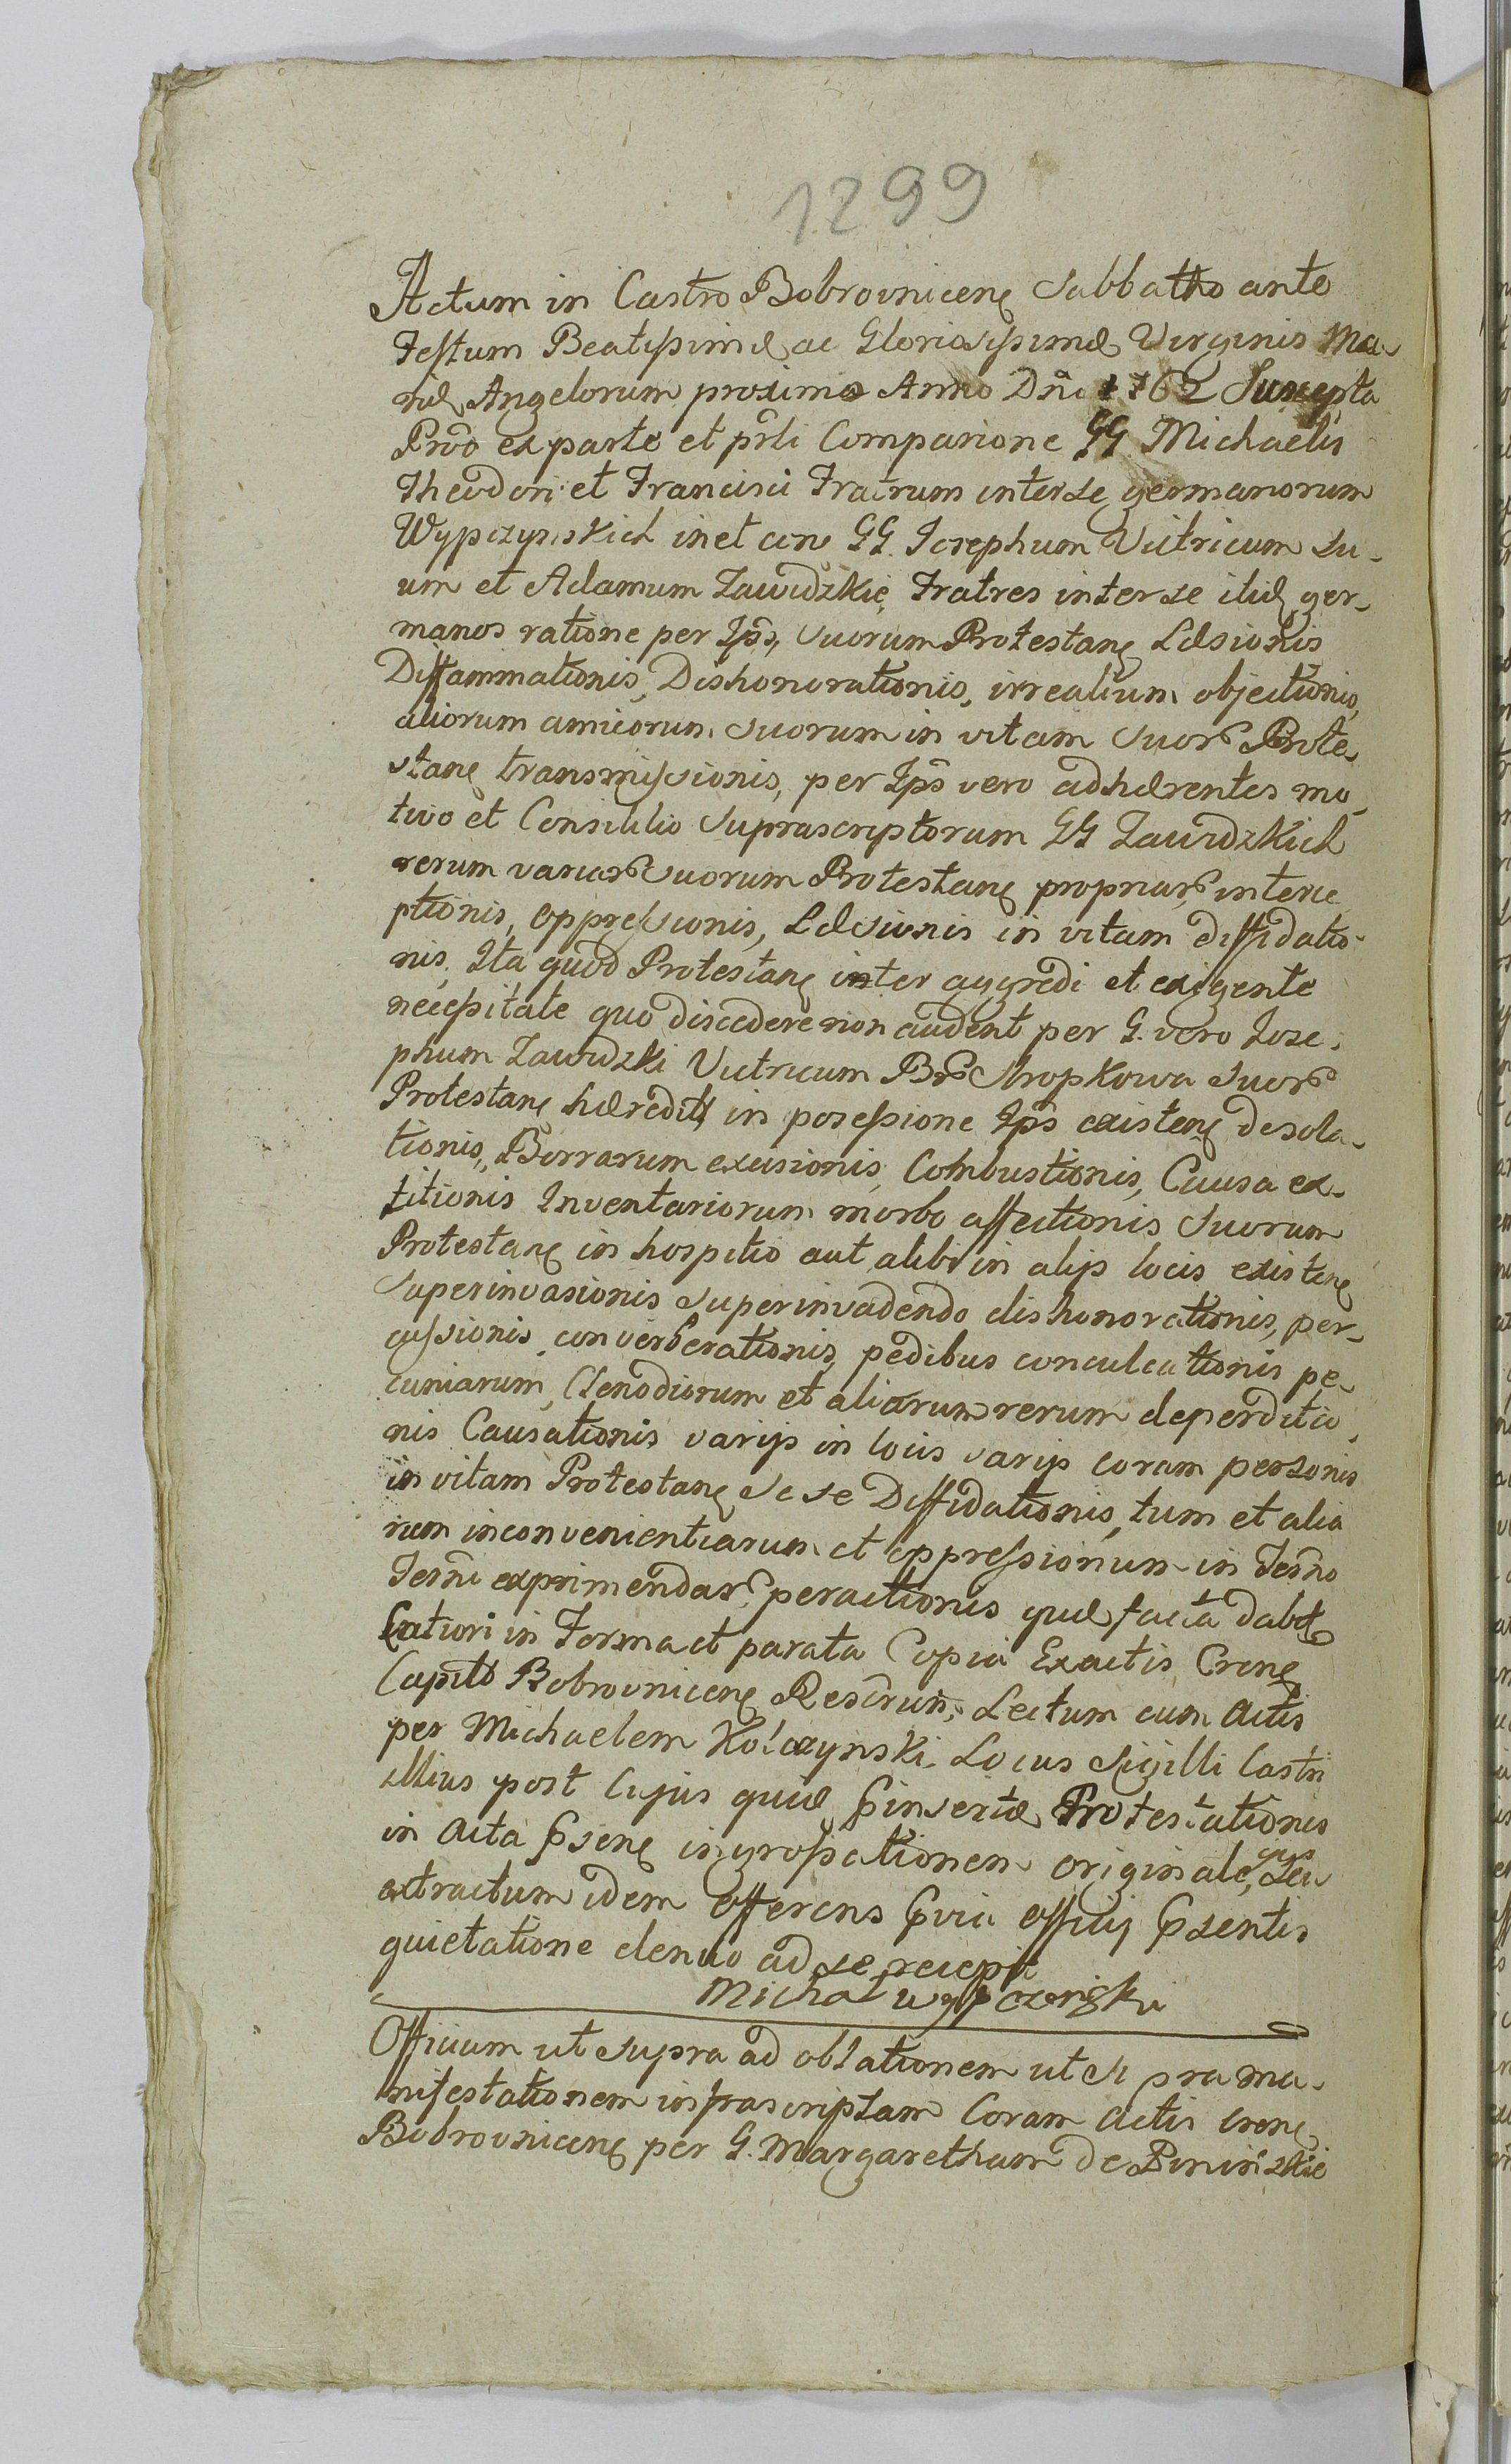 1299
Actum in Castro Bobrovnicenę Sabbatho ante
Festum Beatissimæ ac Gloriosissimæ Virginis Ma-
riæ Angelorum proximo Anno Dñi 1762 Suscepta
Prõo ex parte et pñli Comparione GG Michaelis
Theodori et Francisci Fratrum inter se germanorum
Wypczynskich in et con GG. Josephum Vitricum Su-
um et Adamum Zawidzkie Fratres inter se itid ger-
manos ratione per Ipš, Suorum Protestanę Læsionis
Diffammationis, Dishonorationis, irrealium objectionis,
aliorum amicorum Suorum in vitam Suor Prote-
stanę transmissionis, per Ipš vero adhærentes mo-
tivo et Consililio Suprascriptorum GG Zawidzkich
rerum variar Suorum Protestanę propriar interce
ptionis, oppressionis, Læsionis in vitam diffidatio-
nis, Ita quod Protestanę inter aggredi et exigente
necessitate quo discedere non audent per G. vero Jose-
phum Zawidzki Vitricum Bñ Stropkowa Suor
Protestanę hæredit in posessione Ipš existenę desola-
tionis, Borrarum excisionis, Combustionis, Causa ex-
titionis Inventariorum morbo affectionis Suorum
Protestanę in hospitio aut alibi in alijs locis existenę
Superinvasionis Superinvadendo dishonorationis, per-
cussionis, converberationis, pedibus conculcationis pe-
cuniarum, Clenodiorum et aliarum rerum deperditio-
nis Causationis varijs in locis varijs coram personis
in vitam Protestanę Se se Diffidationis, tum et alia
rum inconvenientiarum et oppressionum in Terno
Terñi exprimendar peractionis quæ facta dabit
Latiori in Forma et parata Copia Ex actis Crenę
Capitt Bobrovnicenę Rescrum, Lectum cum Actis
per Michaelem Kolczynski. Locus Sigilli Castri
illius post Cujus quid pinsertæ Protestationis
in Acta psenę ingrossationem originale, ejus Seu
extractum idem Offerens pvia officij psentis
quietatione denuo ad se recepit
Michał wypczeński
Officium ut Supra ad oblationem ut Supra ma-
nifestationem infrascriptam Coram Actis Crenę
Bobrovnicenę per G. Margaretham de Pininskie